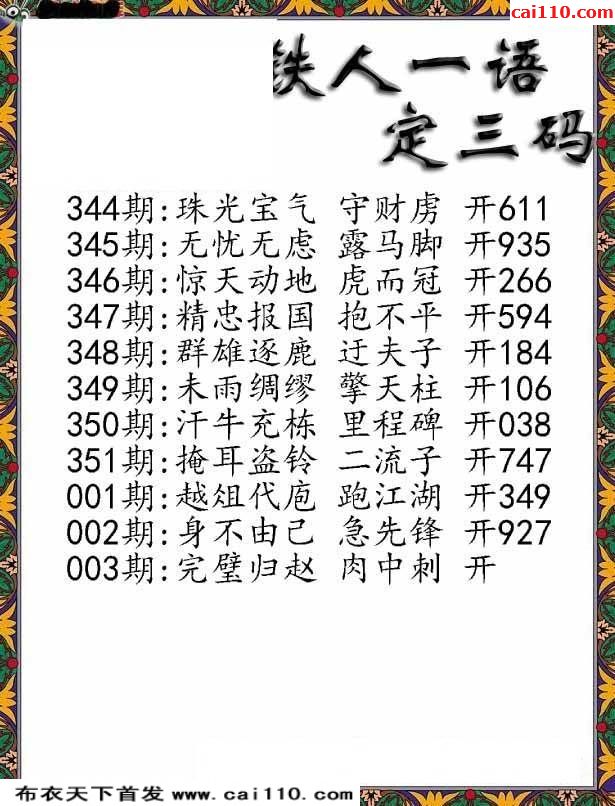 cai110.com
铁人一语
定三码
344期:珠光宝气 守财虏 开611
345期:无忧无虑 露马脚 开935
346期:惊天动地 虎而冠 开266
347期:精忠报国 抱不平 开594
348期:群雄逐鹿 迂夫子 开184
349期:未雨绸缪 擎天柱 开106
350期:汗牛充栋 里程碑 开038
351期:掩耳盗铃 二流子 开747
001期:越俎代庖 跑江湖 开349
002期:身不由己 急先锋 开927
003期:完璧归赵 肉中刺 开
布衣天下首发 www.cai110.com